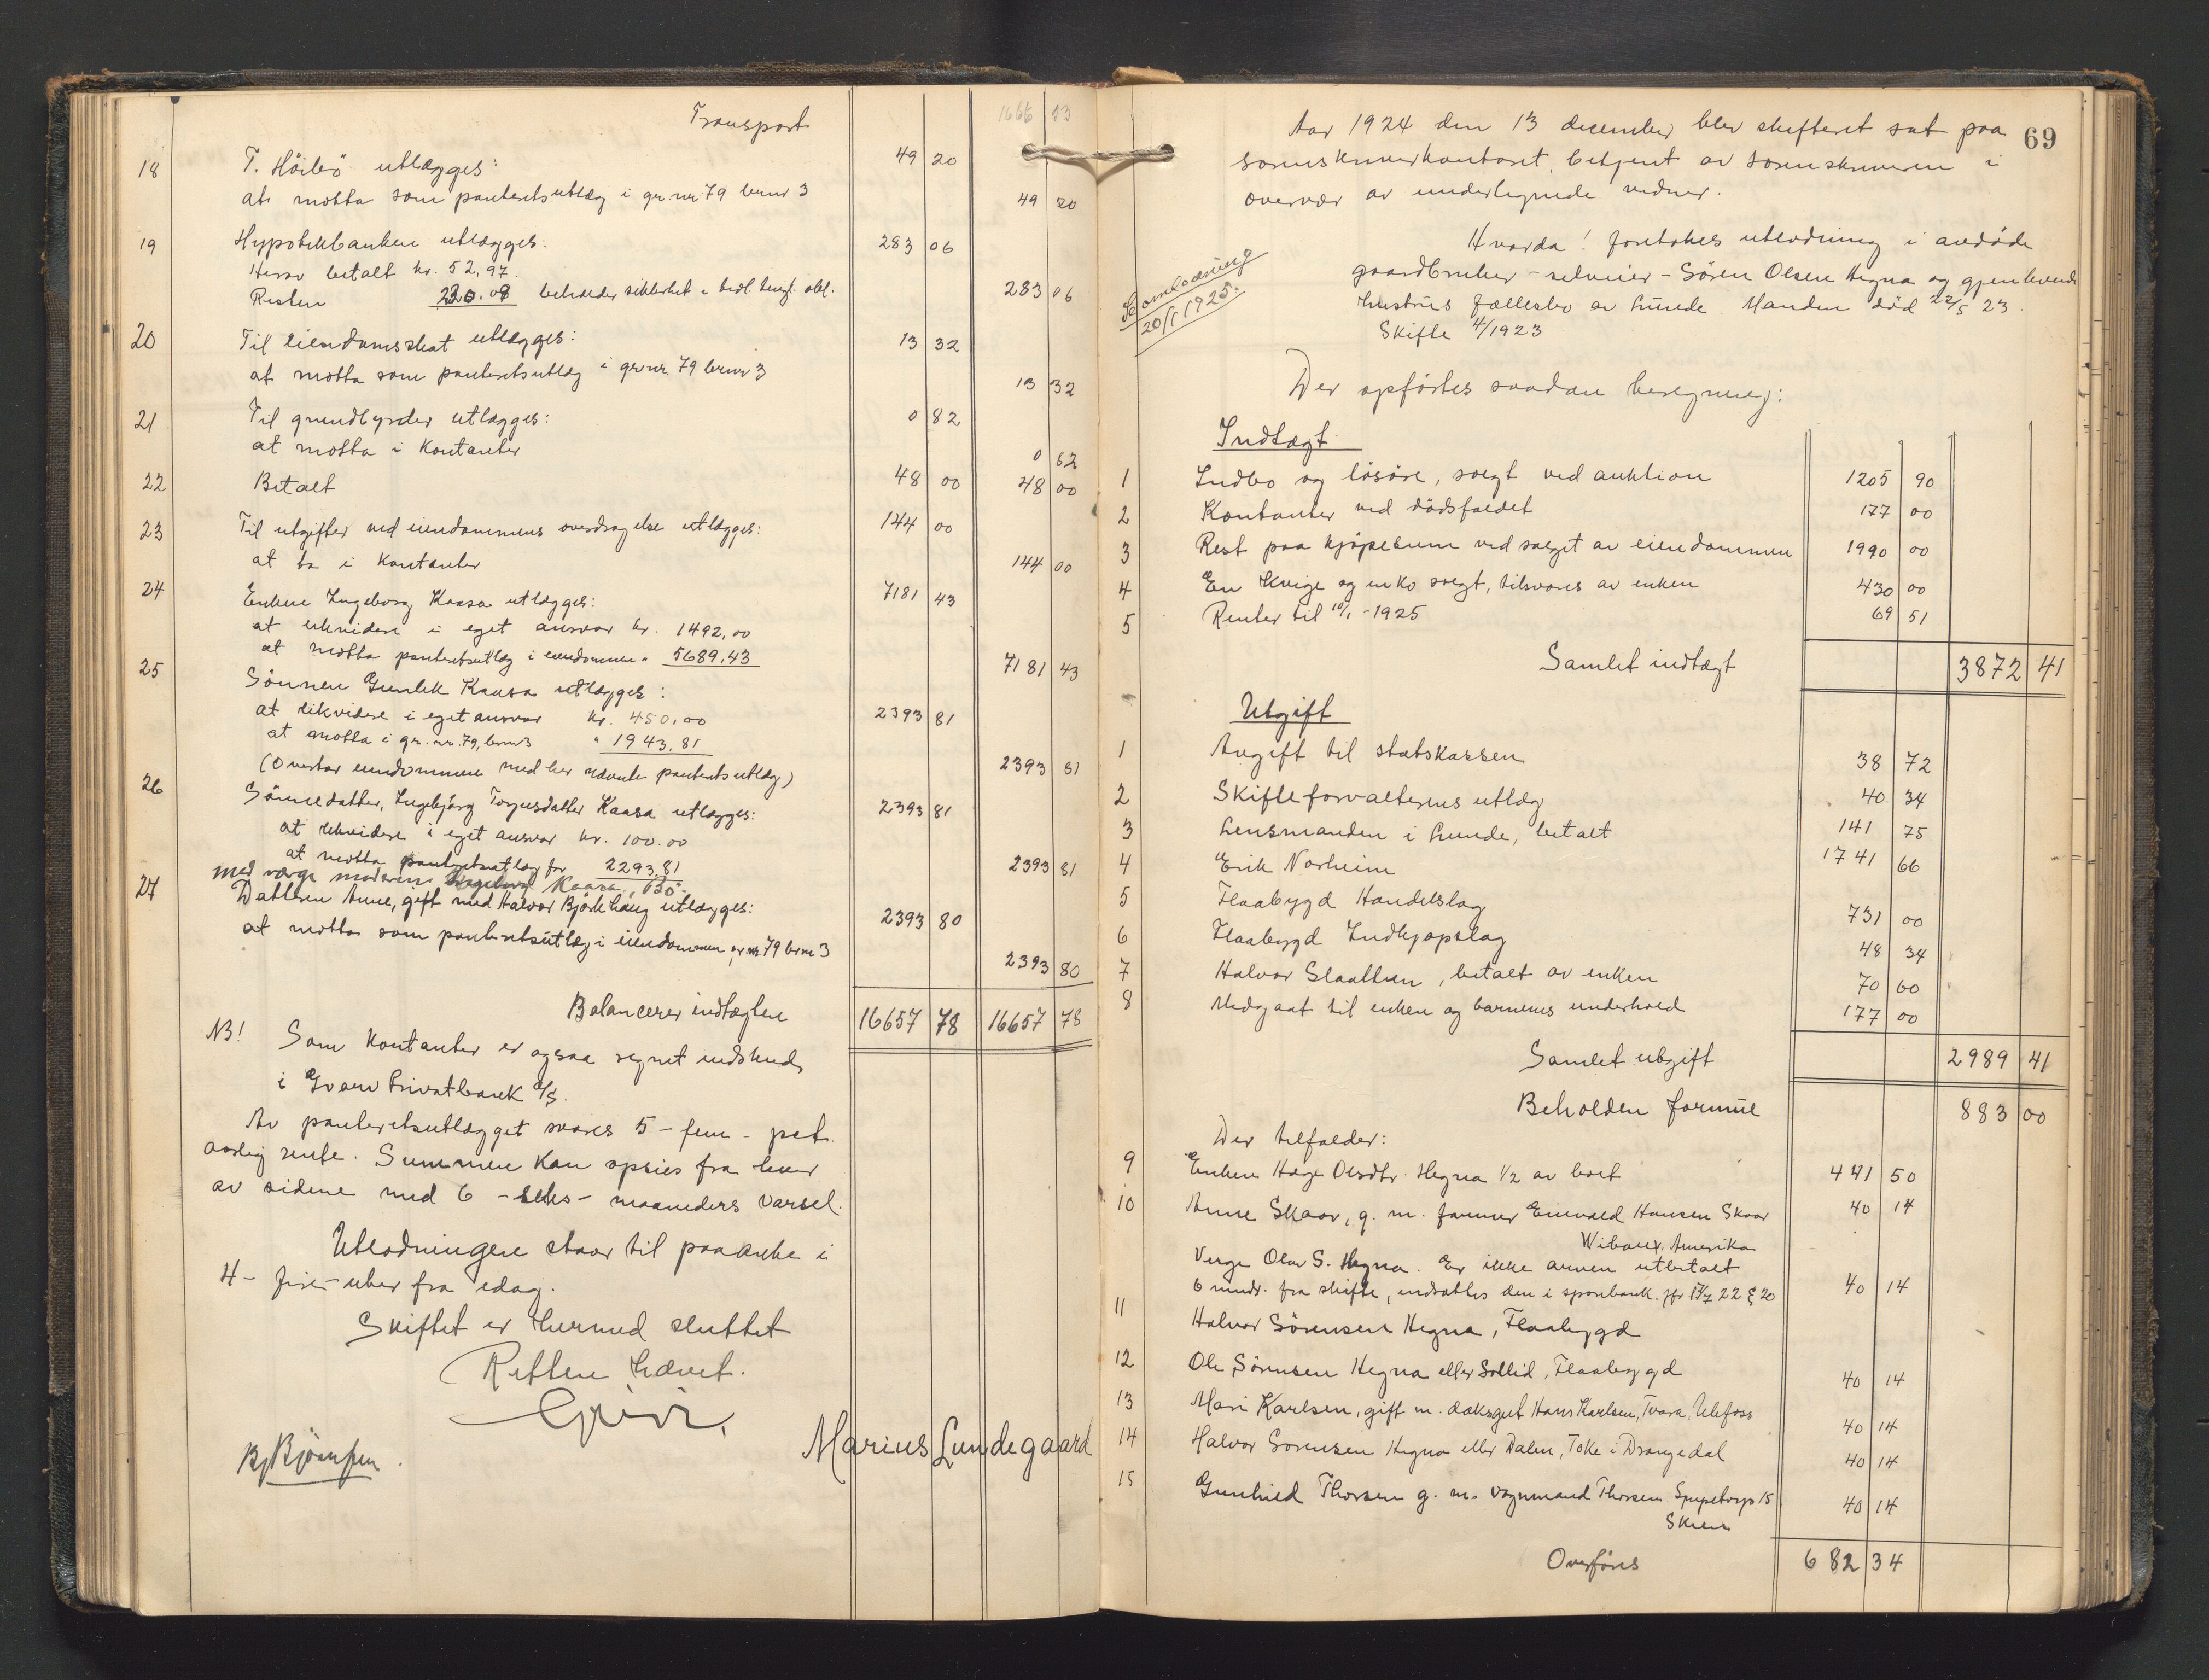 Transport 1666 53
18 T. Höibö utlægges: 49 20
at motta som panteretsutlæg i gr.nr 79 brnr 3 49 20
19 Hypotekbanken utlægges: 283 06
Herav betalt kr. 52,97.
Resten 230.09 beholder sikkerhet i obl. 283 06
20 Til eiendomsskat utlægges: 13 32
at motta som panteretsutlæg i gr.nr. 79 brnr 3 13 32
21 Til grundbyrder utlægges: 0 82
at motta i kontanter 0 82
22 Betalt 48 00 48 00
23 Til utgifter ved eiendommens overdragelse utlægges: 144 00
at ta i kontanter 144 00
24 Enken Ingeborg Kaasa utlægges: 7181 43
at likvidere i eget ansvar kr. 1492,00
at motta panteretsutlæg i eiendommen " 5689.43 7181 43
25 Sönnen Gunlek Kaasa utlægges: 2393 81
at likvidere i eget ansvar kr. 450.00
at motta i gr. nr. 79, brnr 3 " 1943.81
(Overtar eiendommen med her nævnte panteretsutlæg) 2393 81
26 Sönnedatter, Ingebjörg Torjusdatter Kaasa utlægges: 2393 81
at likvidere i eget ansvar kr. 100.00
at motta panteretsutlæg for 2293,81 2393 81
med værge moderen Kaasa, Bö.
27 Datteren Anne, gift med Halvor Björkhaug utlægges: 2393 80
at motta som panteretsutlæg i eiendommen gr. nr 79 brnr 3 2393 80
Balancerer indtægten 16657 78 16657 78
NB! Som kontanter er ogsaa regnet indskud
i Gvarv Privatbank A/S.
Av panteretsutlægget svares 5 - fem - pct.
aarlig rente. Summen kan opsies fra hver
av sidene med 6 - seks - maaneders varsel.
Utlodningen staar til paaanke i
4 - fire - uker fra idag.
Skiftet er hermed sluttet
Retten hævet.
Marius Lundegaard
69
Aar 1924 den 13 december blev skifteret sat paa
sorenskriverkontoret betjent av sorenskriveren i
overvær av undertegnede vidner.
Hvorda! foretokes utlodning i avdöde
gaardbruker - selveier - Sören Olsen Hegna og gjenlevende
hustrus fællesbo av Lunde. Manden död 22/5 23.
Skifte 4/1923
Somlodning
20/1 1925.
Der opförtes saadan beregning:
Indtægt
1 Indbo og lösöre, solgt ved auktion 1205 90
2 Kontanter ved dödsfaldet 177 00
3 Rest paa kjöpesum ved salget av eiendommen 1990 00
4 En kvige og en ko solgt, tilsvares av enken 430 00
5 Renter til 10/1 - 1925 69 51
Samlet indtægt 3872 41
Utgift
1 Avgift til statskassen 38 72
2 Skifteforvalterens utlæg 40 34
3 Lensmanden i Lunde, betalt 141 75
4 Erik Norheim 1741 66
5 Flaabygd Handelslag 731 00
6 Flaabygd Indkjøpslag 48 34
7 Halvor Slaattun, betalt av enken 70 60
8 Medgaat til enken og barnenes underhold 177 00
Samlet utgift 2989 41
Beholden formue 883 00
Der tilfalder:
9 Enken Hæge Olsdtr. Hegna 1/2 av boet 441 50
10 Anne Skaar, g. m. farmer Hansen Skaar 40 14
Wibaux, Amerika
Verge Olav S. Hegna. Er ikke arven utbetalt
6 mndr. fra skifte, indsættes den i sparebank. jfr 17/7 22 § 20 40 14
11 Halvor Sörensen Hegna, Flaabygd
12 Ole Sörensen Hegna eller Sollid, Flaabygd 40 14
13 Mari Karlsen, gift m. dæksgut Hans Karlsen, Tvara, Ulefoss 40 14
14 Halvor Sorensen Hegna eller Dalen, Toke i Drangedal 40 14
15 Gunhild Thorsen g. m. vognmand Thorsen 15 40 14
Skien
Overföres 682 34